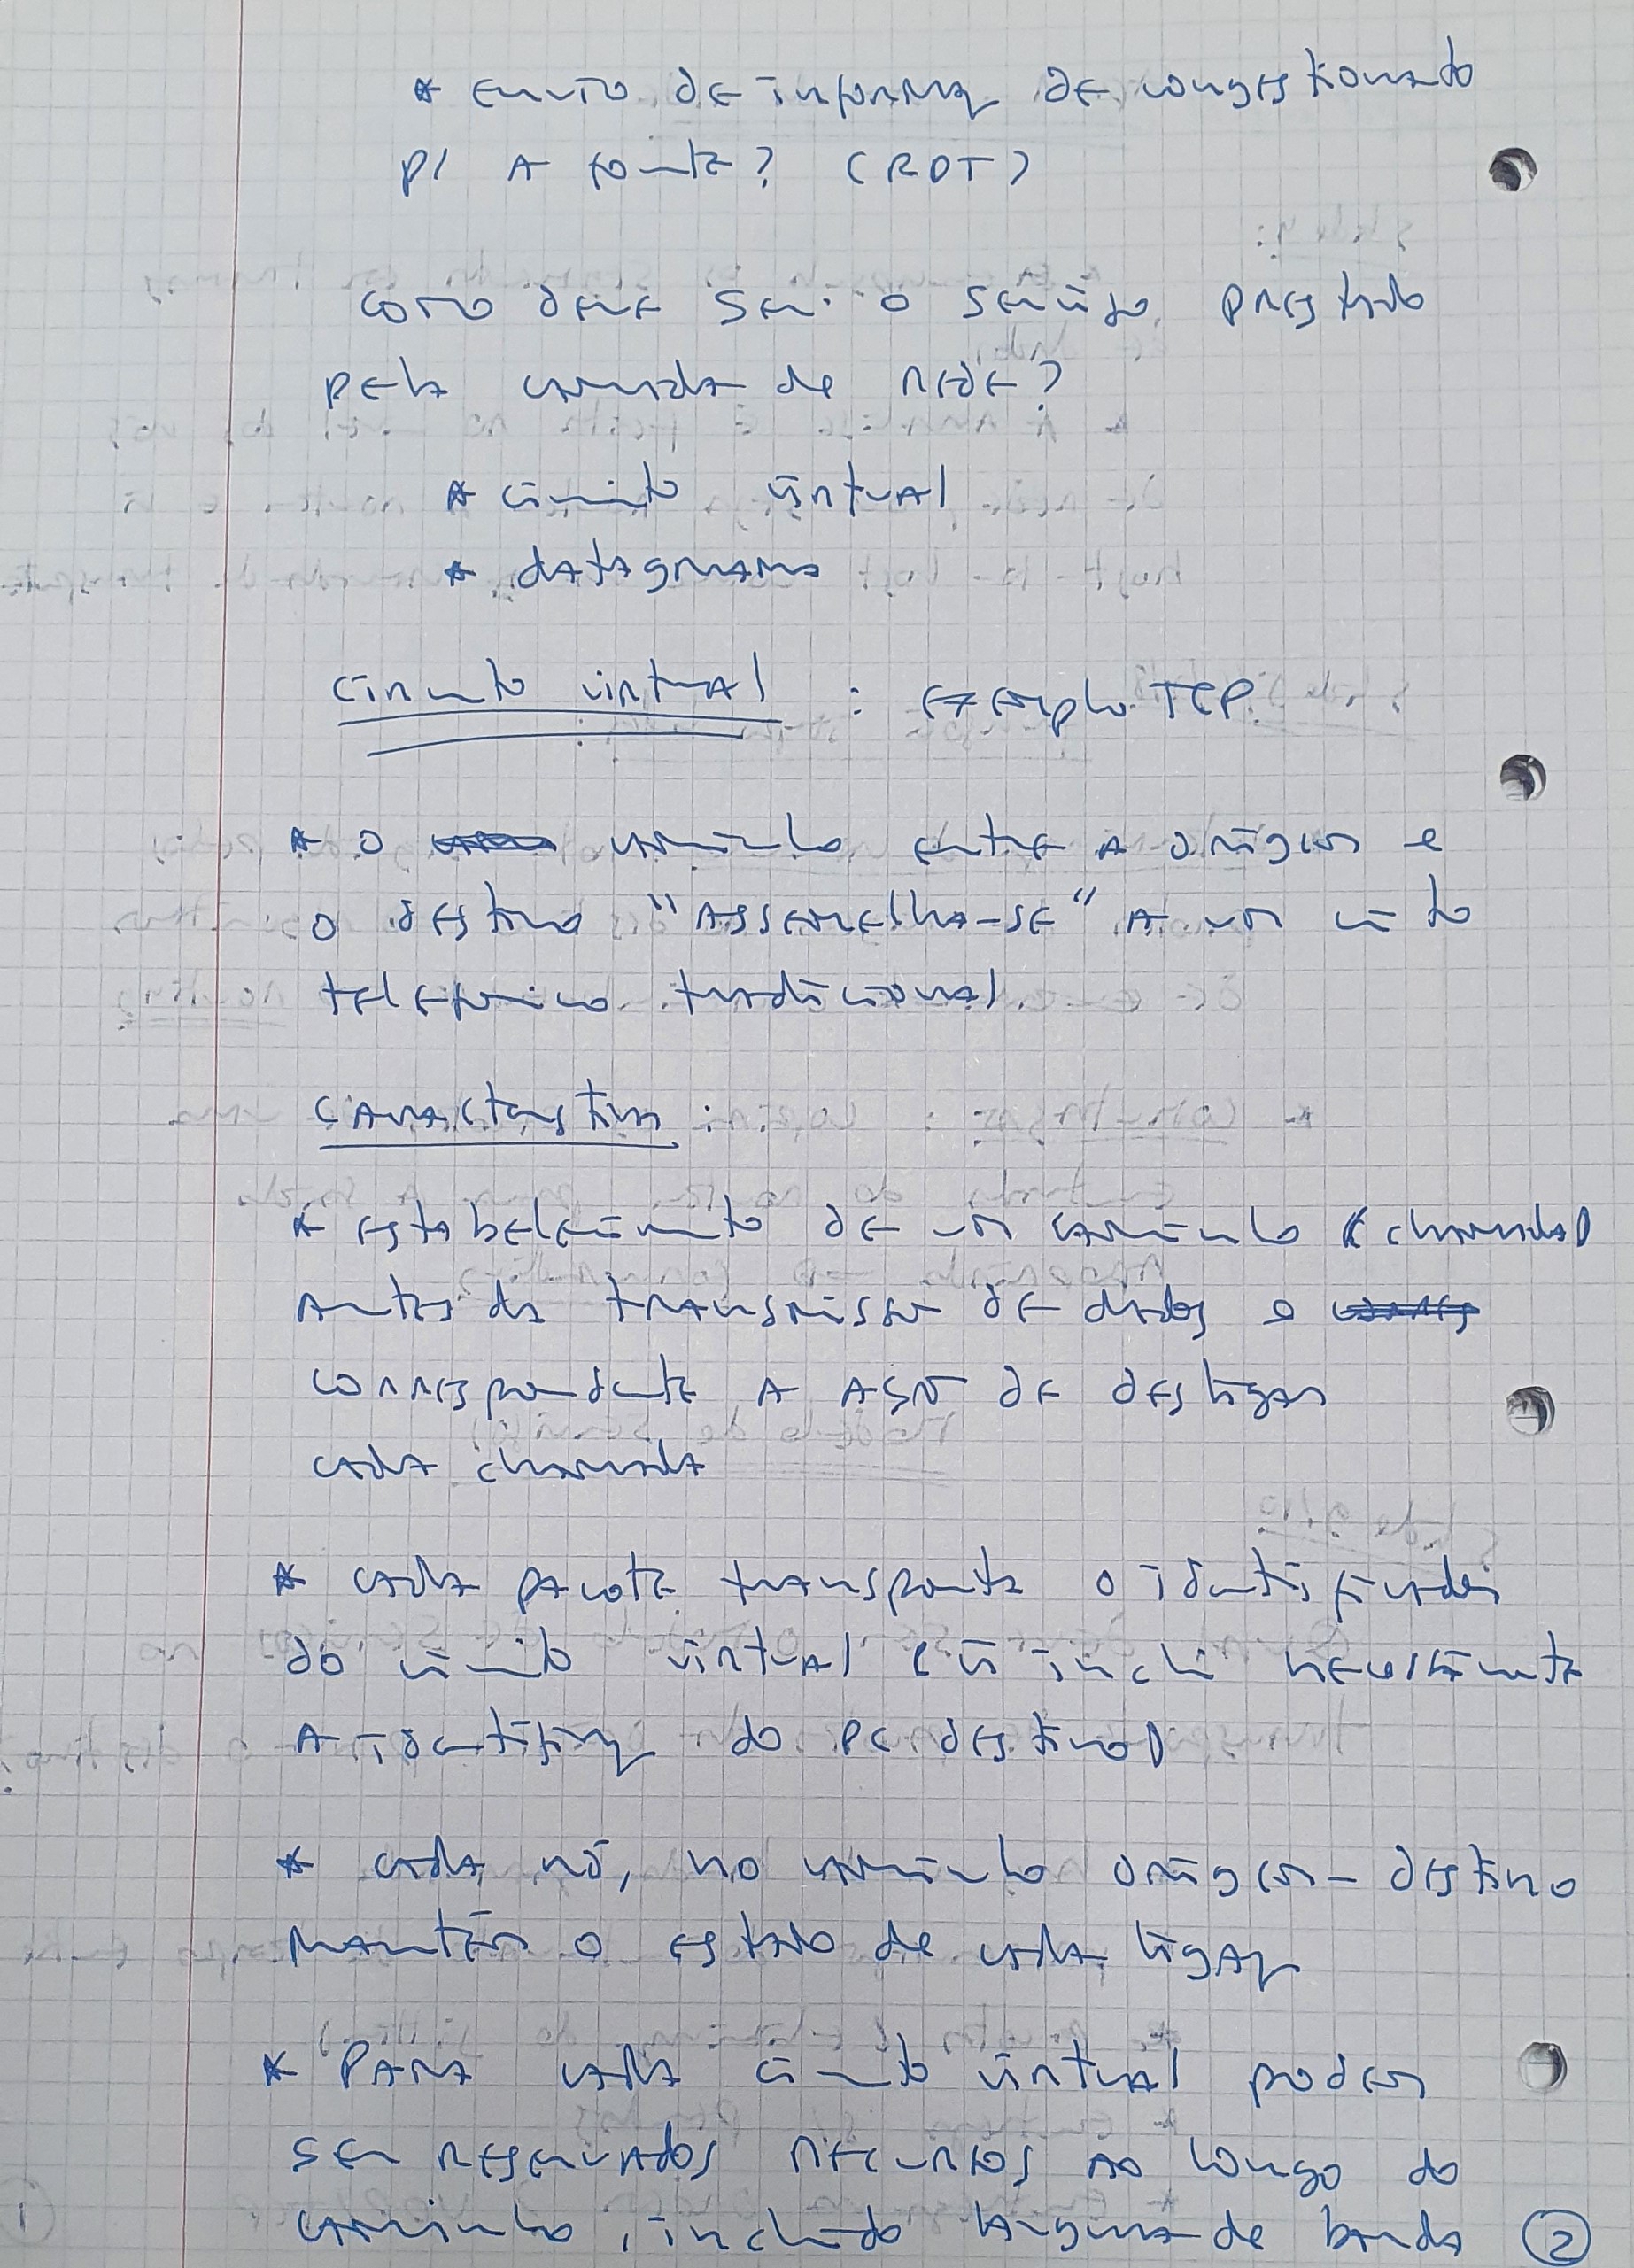 * envio de informaç de congestionamento
p/ a fonte? (RDT)
como deve ser o serviço prestado
pela camada de rede?
* circuito virtual
* datagrama
circuito virtual : exemplo TCP
* o caminho entre a origem e
o destino "assemelha-se" a um circuito
telefónico tradicional
características :
* estabelecimento de um caminho (chamada)
antes da transmissão de dados e
correspondente a ação de desligar
cada chamada
* cada pacote transporta o identificador
do circuito virtual (ñ inclui necessariamente
a identificaç do PC destino)
* cada nó, no caminho origem-destino
mantém o estado de cada ligaç
* Para cada circuito virtual podem
ser reservados recursos ao longo do
caminho, incluindo largura de banda 2